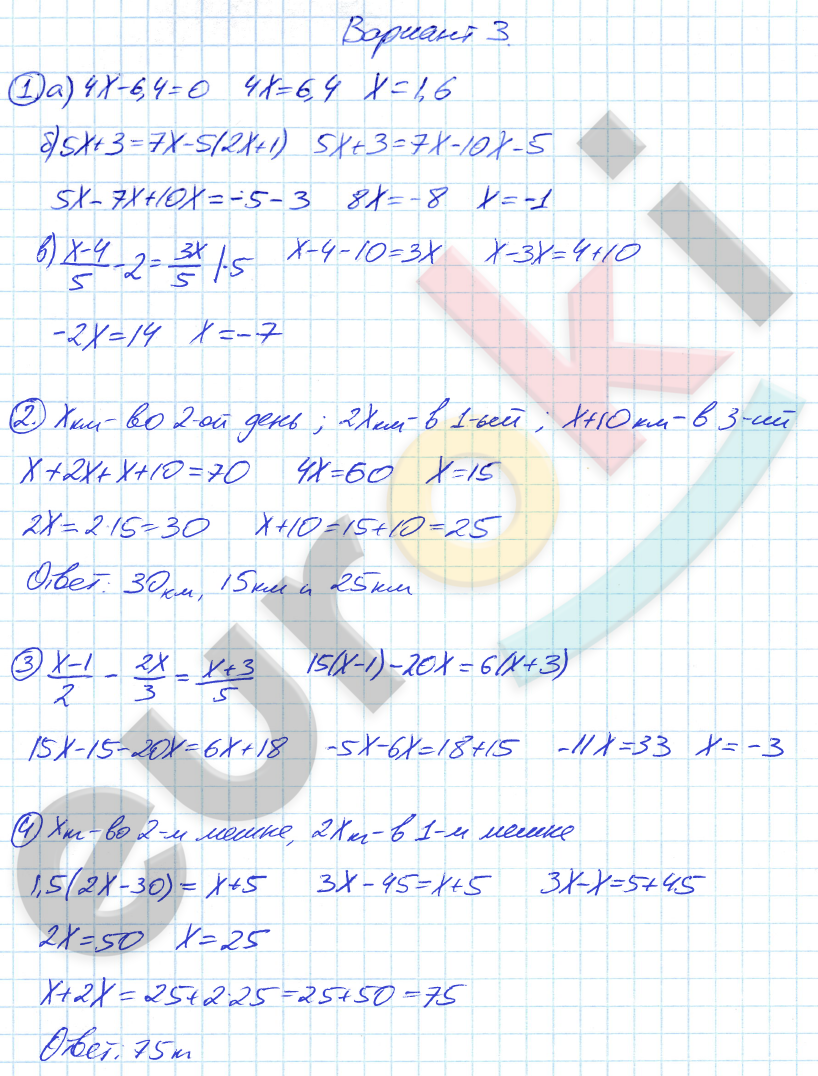 Вариант 3.
1. а) 4x-6,4=0 4x=6,4 x=1,6
б) 5x+3=7x-5(2x+1) 5x+3=7x-10x-5
5x-7x+10x=-5-3 8x=-8 x=-1
в) (x-4)/5 - 2 = 3x/5 |·5 x-4-10=3x x-3x=4+10
-2x=14 x=-7
2. x км - во 2-ой день; 2x км - в 1-ый; x+10 км - в 3-ий
x+2x+x+10=70 4x=60 x=15
2x=2·15=30 x+10=15+10=25
Ответ: 30 км, 15 км и 25 км
3 (x-1)/2 - 2x/3 = (x+3)/5 15(x-1)-20x=6(x+3)
15x-15-20x=6x+18 -5x-6x=18+15 -11x=33 x=-3
4 x т - во 2-м мешке, 2x т - в 1-м мешке
1,5(2x-30)=x+5 3x-45=x+5 3x-x=5+45
2x=50 x=25
x+2x=25+2·25=25+50=75
Ответ: 75 т
euroki